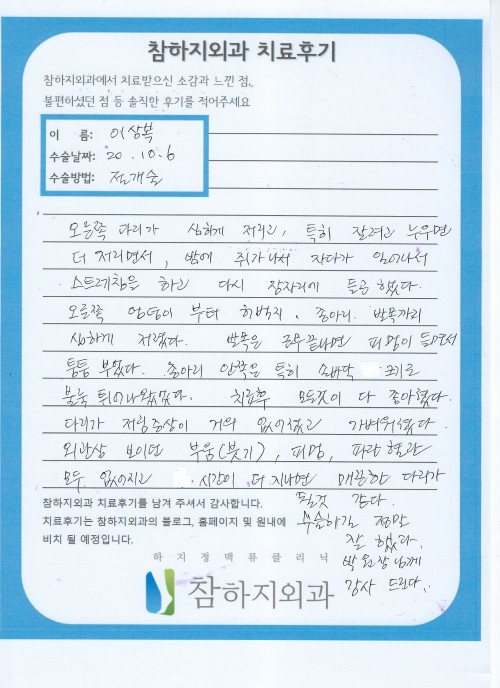 참하지외과 치료후기
참하지외과에서 치료받으신 소감과 느낀 점,
불편하셨던 점 등 솔직한 후기를 적어주세요
이 름: 이상복
수술날짜: 20.10.6
수술방법: 절개술
오른쪽 다리가 심하게 저리고, 특히 잘려고 누우면
더 저리면서, 밤에 쥐가나서 자다가 일어나서
스트레칭을 하고 다시 잠자리에 들곤 했다.
오른쪽 엉덩이 부터 허벅지. 종아리. 발목까지
심하게 저렸다. 발목은 근무끝나면 피멍이 들면서
퉁퉁 부었다. 종아리 안쪽은 특히 손바닥 크기로
불룩 튀어나왔었다. 치료후 모든것이 다 좋아졌다.
다리가 저림증상이 거의 없어졌고 가벼워졌다.
외관상 보이던 부움(붓기), 피멍, 파란 혈관
모두 없어지고 시간이 더 지나면 매끈한 다리가
될것 같다.
수술하길 정말
잘 했다.
박원장님께
감사 드린다..
참하지외과 치료후기를 남겨 주셔서 감사합니다.
치료후기는 참하지외과의 블로그, 홈페이지 및 원내에
비치 될 예정입니다.
하지정맥류클리닉
참하지외과